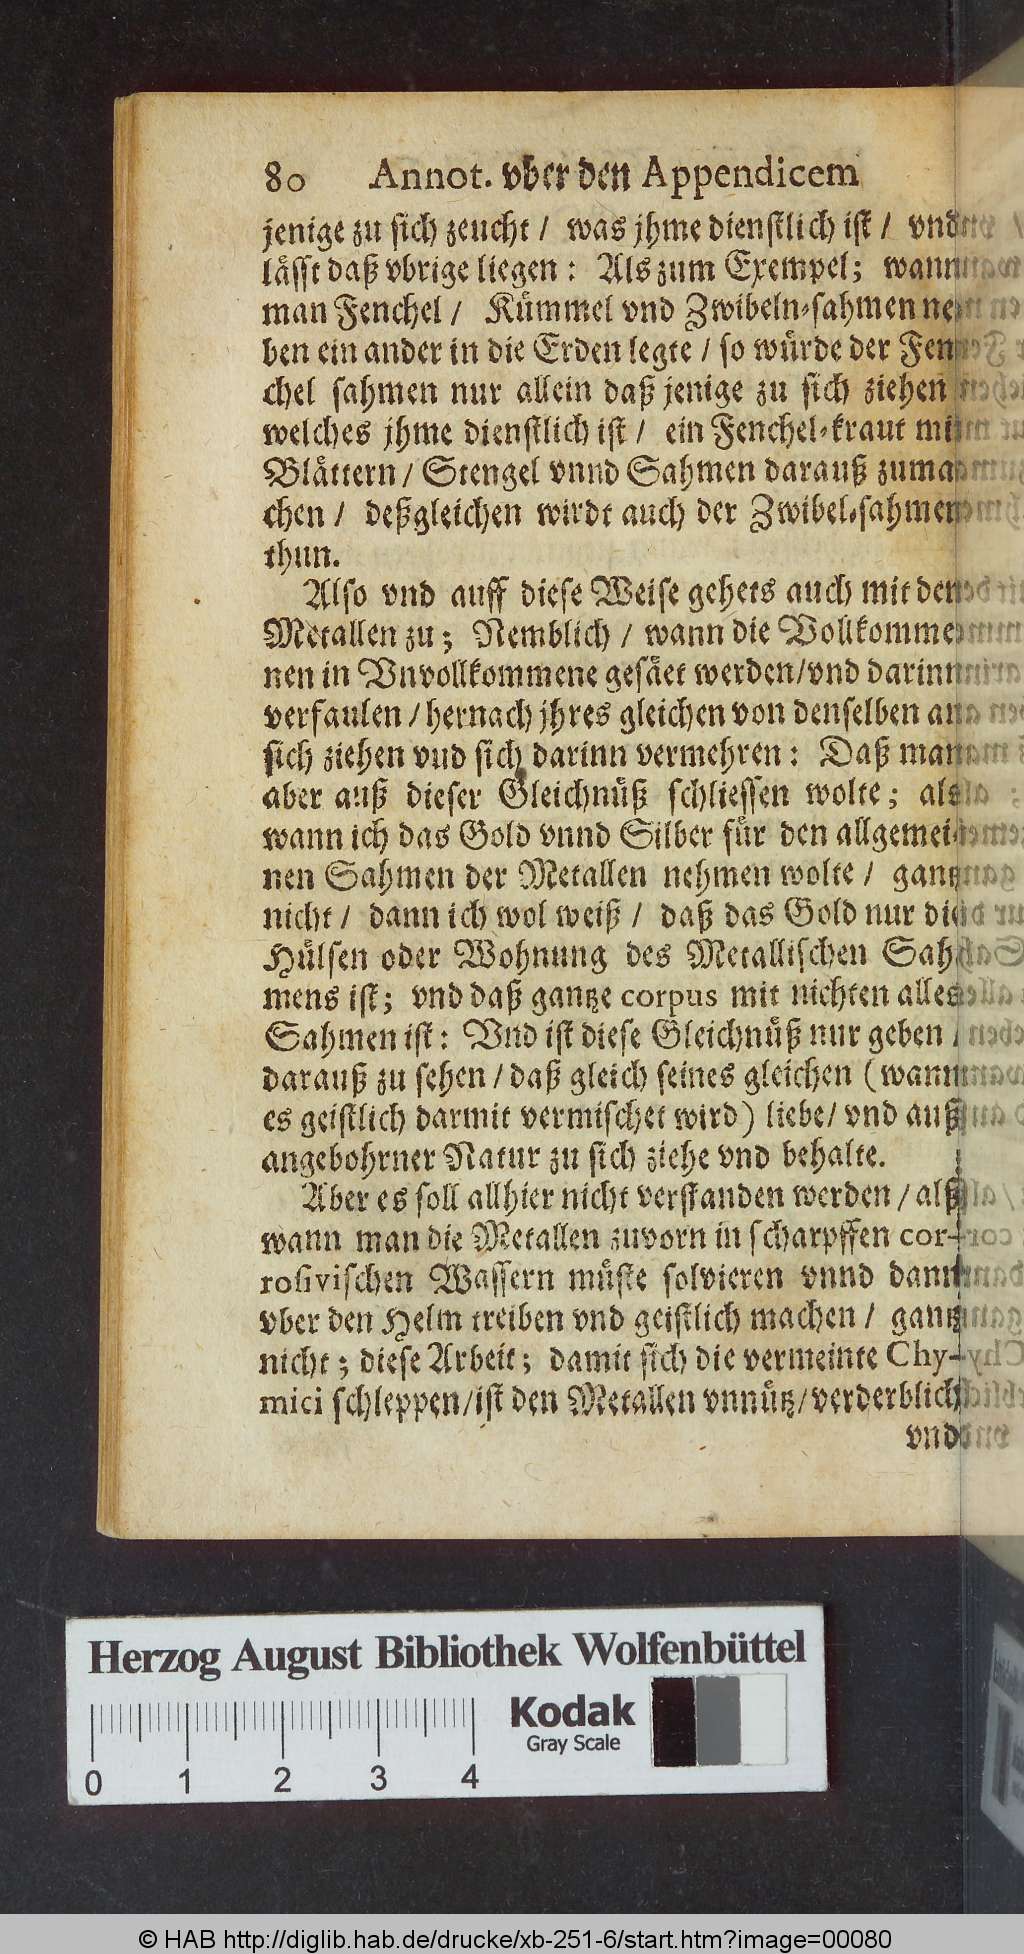 80 Annot. vber den Appendicem
jenige zu sich zeucht / was jhme dienstlich ist / vnd
lässt daß vbrige liegen: Als zum Exempel; wann
man Fenchel / Kümmel vnd Zwibeln-sahmen ne-
ben ein ander in die Erden legte / so würde der Fen-
chel sahmen nur allein daß jenige zu sich ziehen
welches jhme dienstlich ist / ein Fenchel-kraut mit
Blättern / Stengel vnnd Sahmen darauß zuma-
chen / deßgleichen wirdt auch der Zwibel-sahmen
thun.
Also vnd auff diese Weise gehets auch mit den
Metallen zu; Nemblich / wann die Vollkomme-
nen in Vnvollkommene gesäet werden/vnd darinn
verfaulen / hernach jhres gleichen von denselben an
sich ziehen vud sich darinn vermehren: Daß man
aber auß dieser Gleichnüß schliessen wolte; als
wann ich das Gold vnnd Silber für den allgemei-
nen Sahmen der Metallen nehmen wolte / gantz
nicht / dann ich wol weiß / daß das Gold nur die
Hülsen oder Wohnung des Metallischen Sah-
mens ist; vnd daß gantze corpus mit nichten alles
Sahmen ist: Vnd ist diese Gleichnüß nur geben /
darauß zu sehen / daß gleich seines gleichen (wann
es geistlich darmit vermischet wird) liebe/ vnd auß
angebohrner Natur zu sich ziehe vnd behalte.
Aber es soll allhier nicht verstanden werden / alß
wann man die Metallen zuvorn in scharpffen cor-
rosivischen Wassern müste solvieren vnnd dann
vber den Helm treiben vnd geistlich machen / gantz
nicht; diese Arbeit; damit sich die vermeinte Chy-
mici schleppen/ist den Metallen vnnütz/verderblich
vnd
Herzog August Bibliothek Wolfenbüttel
Kodak
Gray Scale
0 1 2 3 4
© HAB http://diglib.hab.de/drucke/xb-251-6/start.htm?image=00080